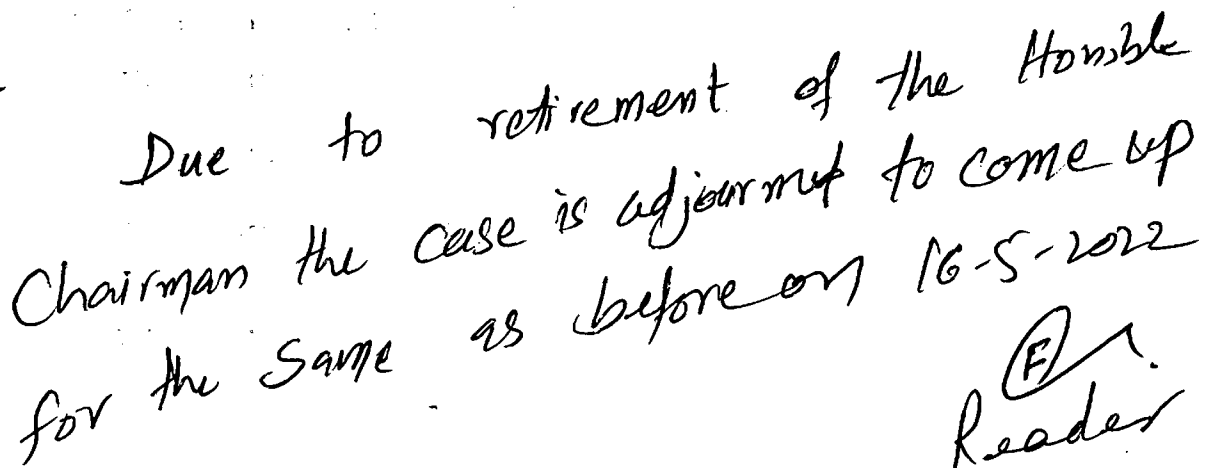 Due to retirement of the Hon'ble
Chairman the case is adjourned to come up
for the same as before on 16-5-2022
Reader